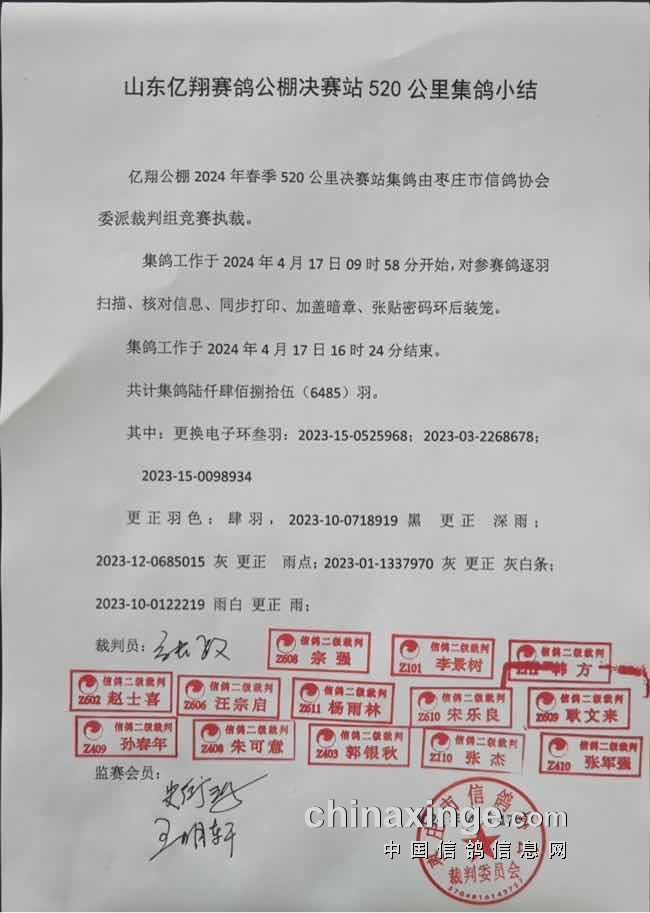 山东亿翔赛鸽公棚决赛站 520 公里集鸽小结
亿翔公棚 2024 年春季 520 公里决赛站集鸽由枣庄市信鸽协会
委派裁判组竞赛执裁。
集鸽工作于 2024 年 4 月 17 日 09 时 58 分开始，对参赛鸽逐羽
扫描、核对信息、同步打印、加盖暗章、张贴密码环后装笼。
集鸽工作于 2024 年 4 月 17 日 16 时 24 分结束。
共计集鸽陆仟肆佰捌拾伍（6485）羽。
其中：更换电子环叁羽：2023-15-0525968；2023-03-2268678；
2023-15-0098934
更正羽色：肆羽，2023-10-0718919 黑 更正 深雨；
2023-12-0685015 灰 更正 雨点；2023-01-1337970 灰 更正 灰白条；
2023-10-0122219 雨白 更正 雨；
裁判员：
信鸽二级裁判 Z608 宗强
信鸽二级裁判 Z101 李景树
信鸽二级裁判 韩方
信鸽二级裁判 Z602 赵士喜
信鸽二级裁判 Z606 汪宗启
信鸽二级裁判 Z611 杨雨林
信鸽二级裁判 Z610 宋乐良
信鸽二级裁判 Z609 耿文来
信鸽二级裁判 Z409 孙春年
信鸽二级裁判 Z408 朱可意
信鸽二级裁判 Z403 郭银秋
信鸽二级裁判 Z110 张杰
信鸽二级裁判 Z410 张军强
监赛会员：
王明轩
枣庄市信鸽协会
裁判委员会
chinaxinge.com
中国信鸽信息网